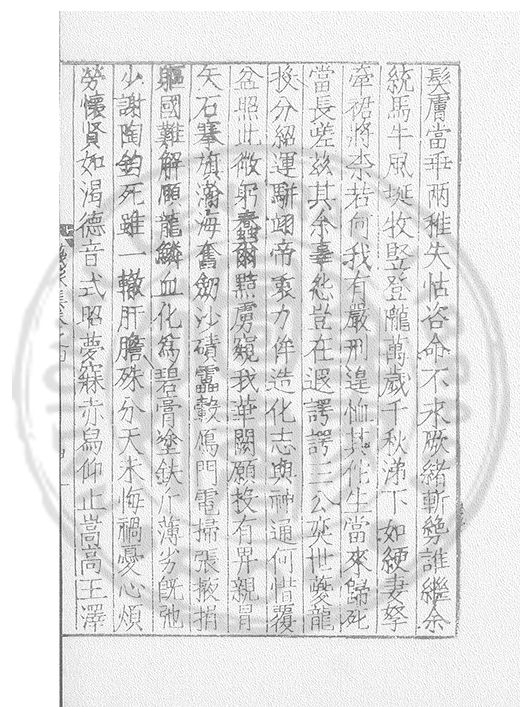 髮膚當乖兩稚失怙咨命不永厥緒斬絶誰繼余
統馬牛風埏牧豎登隴萬歲千秋涕下如綆妻孥
牽裾將柰若何我有嚴刑遑恤其他生當來歸死
當長嗟玆其余辜死豈在遐諤諤三公奕世夔龍
挨分紹運駢翊帝乘力侔造化志與神通何惜覆
盆照此微躬蠢爾黠虜窺我華關願投有畀親冐
矢石搴旗瀚海奮劒沙磧靁轂鴈門電掃張掖捐
軀國難解願龍鱗血化爲碧膏塗鈇斤薄劣旣弛
少謝陶鈞死雖一轍肝膽殊分天未悔禍憂心煩
勞懷賢如渴德音式昭夢寐赤舃仰止嵩高王澤